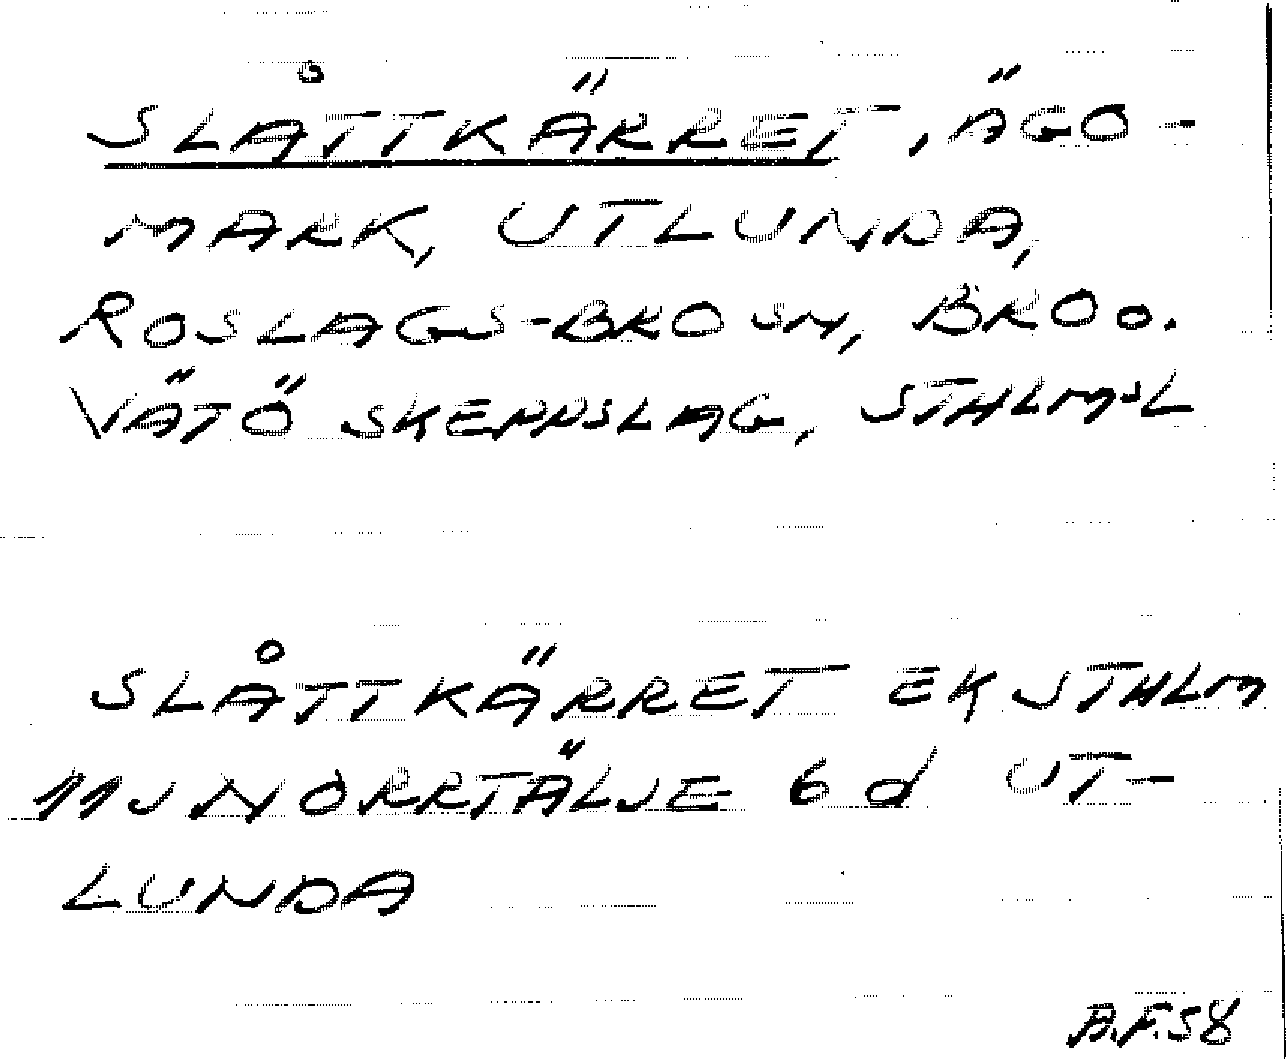 SLÅTTKÄRRET, ÄGO-
MARK, UTLUNDA,
ROSLAGS-BRO SN, BRO O.
VÄTÖ SKEPPSLAG, STHLMSL
SLÅTTKÄRRET EK STHLM
11J NORRTÄLJE 6 d UT-
LUNDA
A.F.58